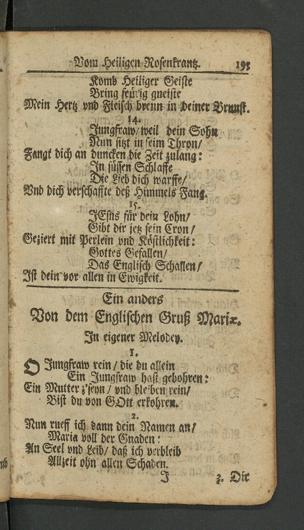 Vom Heiligen Rosenkrantz. 195
Komb Heiliger Geiste
Bring fewrig gneiste
Mein Hertz vnd Fleisch brenn in deiner Brunst.
14.
Jungfraw/ weil dein Sohn
Nun sitzt in seim Thron/
Fangt dich an duncken die Zeit zulang:
In süssen Schlaffe
Die Lieb dich warffe/
Vnd dich verschaffte deß Himmels Fang.
15.
JEsus für dein Lohn/
Gibt dir jetz sein Cron/
Geziert mit Perlein vnd Köstlichkeit:
Gottes Gefallen/
Das Englisch Schallen/
Ist dein vor allen in Ewigkeit.
Ein anders
Von dem Englischen Gruß Mariæ.
In eigener Melodey.
1.
O Jungfraw rein/ die du allein
Ein Jungfraw hast gebohren:
Ein Mutter z'seyn/ vnd bleiben rein/
Bist du von GOtt erkohren.
2.
Nun rueff ich dann dein Namen an/
Maria voll der Gnaden:
An Seel vnd Leib/ daß ich verbleib
Allzeit ohn allen Schaden.
J 3. Die